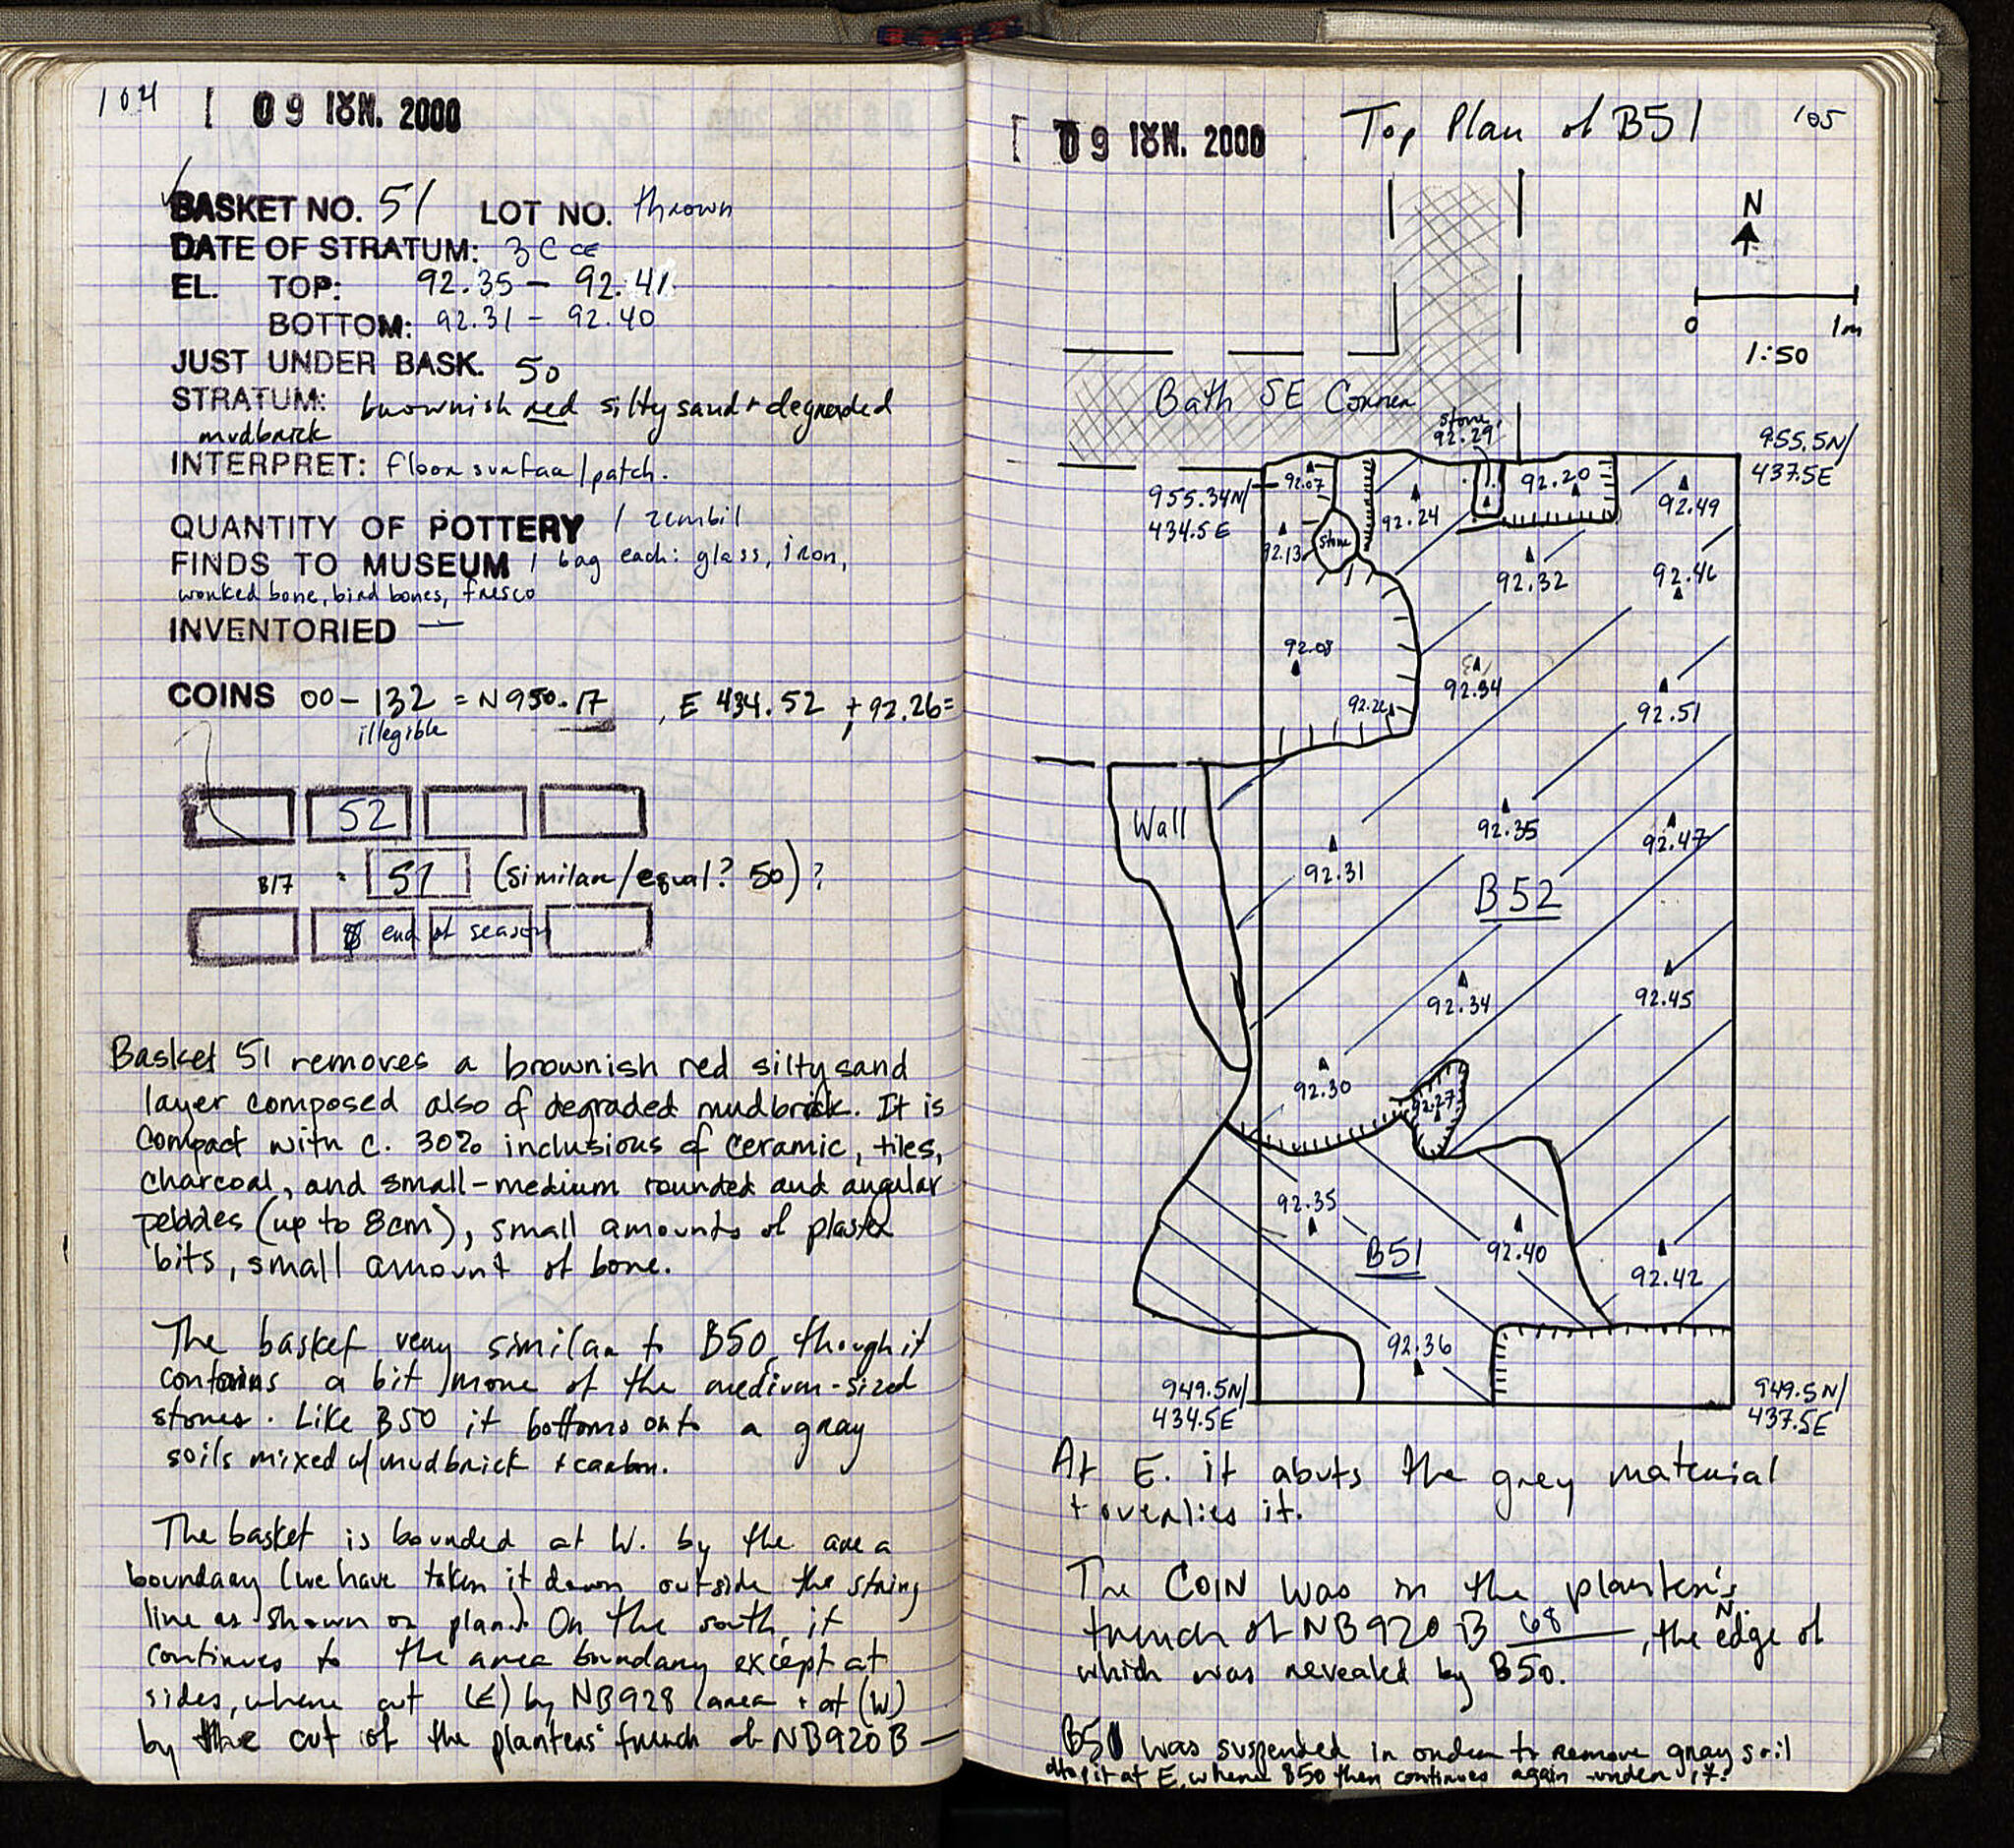 104
09 ΙΟΥΝ. 2000
BASKET NO. 51 LOT NO. thrown
DATE OF STRATUM: 3 C CE
EL. TOP: 92.35 - 92.41
BOTTOM: 92.31 - 92.40
JUST UNDER BASK. 50
STRATUM: brownish red silty sand + degraded
mudbrick
INTERPRET: floor surface/patch.
QUANTITY OF POTTERY 1 zembil
FINDS TO MUSEUM 1 bag each: glass, iron,
worked bone, bird bones, fresco
INVENTORIED —
COINS 00-132 = N 950.17, E 434.52 + 92.26=
illegible
52
B17 = 51 (similar/equal? 50)?
end of season
Basket 51 removes a brownish red silty sand
layer composed also of degraded mudbrick. It is
compact with c. 30% inclusions of ceramic, tiles,
charcoal, and small-medium rounded and angular
pebbles (up to 8cm), small amounts of plaster
bits, small amount of bone.
The basket very similar to B50, though it
contains a bit more of the medium-sized
stones. Like B50 it bottoms onto a gray
soils mixed w/ mudbrick + carbon.
The basket is bounded at W. by the area
boundary (we have taken it down outside the string
line as shown on plan). On the south, it
continues to the area boundary except at
sides, where cut (E) by NB928 (area + at (W)
by the cut of the planters' trench of NB920B —
09 ΙΟΥΝ. 2000
Top Plan of B51
105
N
0 1m
1:50
Bath SE Corner
stone
92.29
955.5N/
437.5E
955.34N/
434.5E
92.07
92.20
92.49
92.24
stone
92.13
92.32
92.46
92.08
92.34
92.51
Wall
92.35
92.47
92.31
B52
92.34
92.45
92.30
92.27
92.35
B51
92.40
92.42
92.36
949.5N/
434.5E
949.5N/
437.5E
At E. it abuts the grey material
+ overlies it.
The COIN was in the planter's
trench of NB920 B 68, the N. edge of
which was revealed by B50.
B51 was suspended in order to remove gray soil
atop it at E, where B50 then continues again under it.